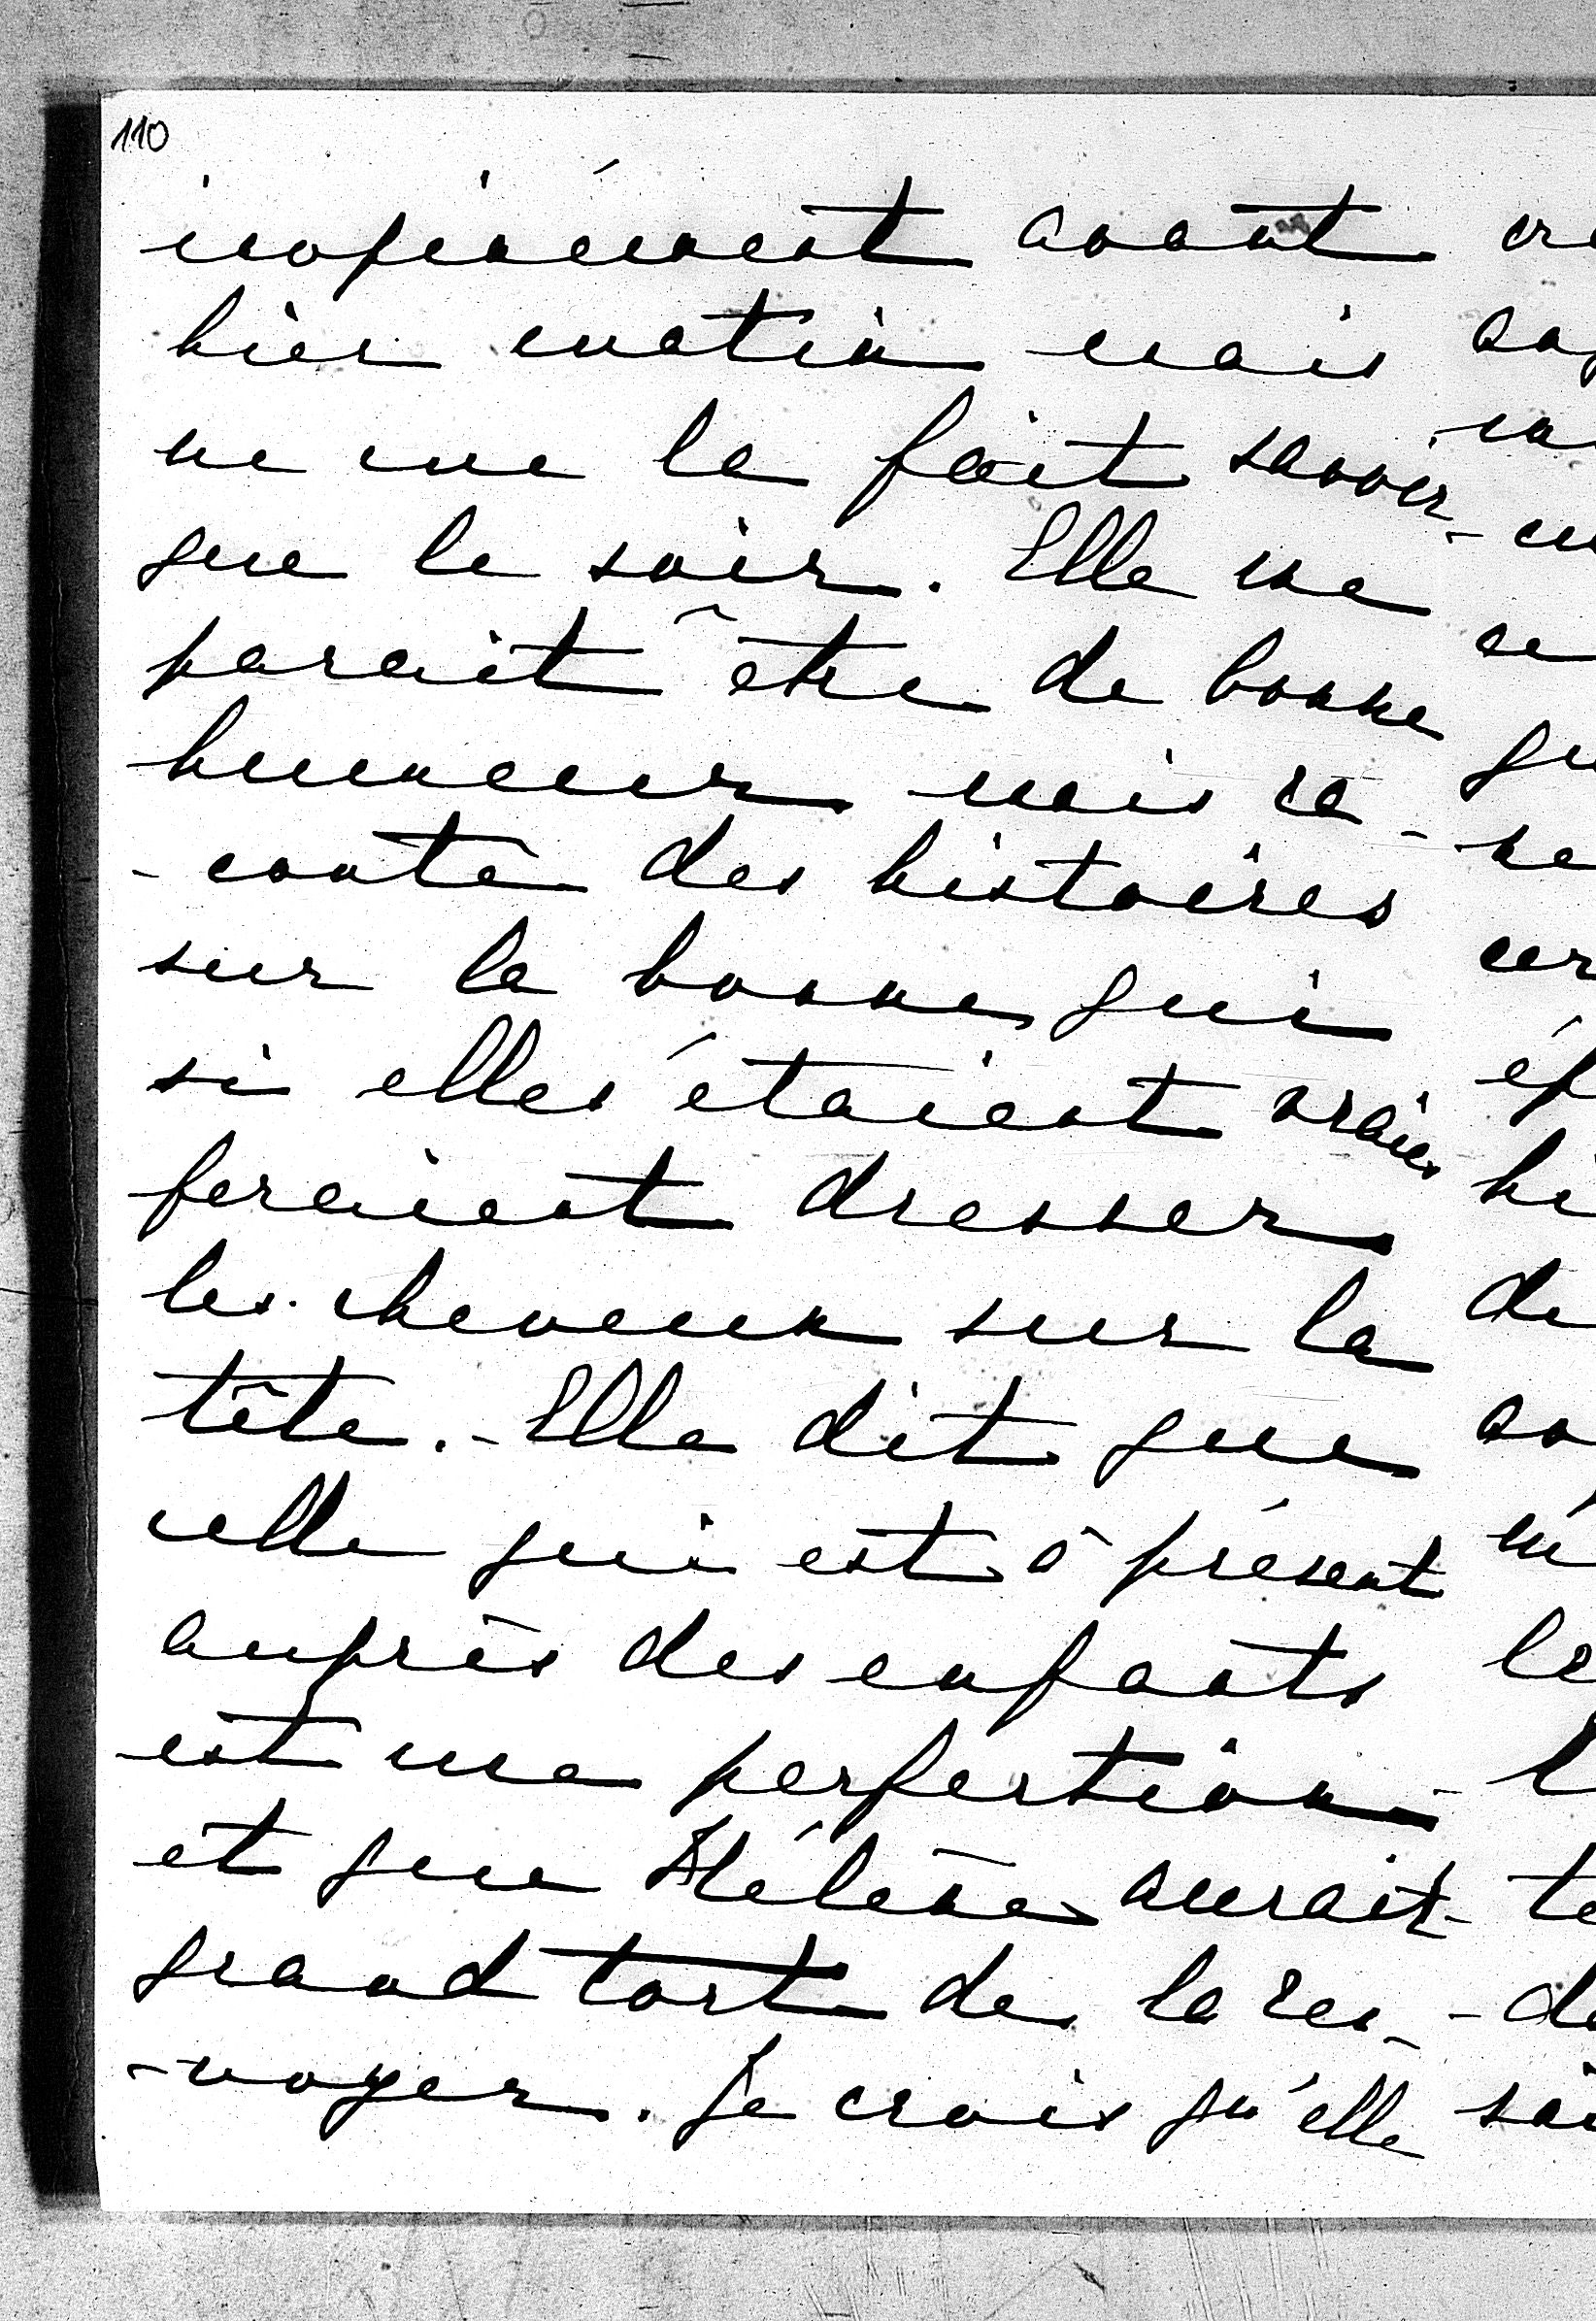 110
inopinément avant
hier matin mais
ne me le fait savoir
que le soir. Elle me
parait être de bonne
humeur mais ra-
-conte des histoires
sur la bonne qui
si elles étaient vraies
feraient dresser
les cheveux sur la
tête. - Elle dit que
celle qui est à présent
auprès des enfants
est une perfection
et que Hélène aurait
grand tort de la ren-
-voyer. Je crois qu'elle